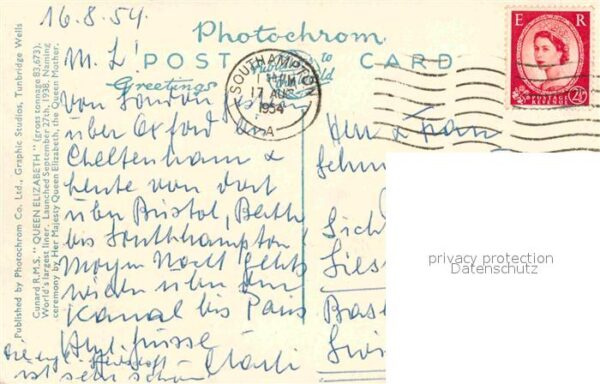 16.8.54
Photochrom
POST CARD
Greetings
M. L!
von London gestern
über Oxford
Cheltenham &
heute von dort
über Bristol, Bath
bis Southhampton
Morgen Nacht gehts
wieder über den
Kanal bis Paris
Hzl. Grüsse
Charli
ist sehr schön
SOUTHAMPTON
17 AUG
1954
E R
POSTAGE
REVENUE
2½D
Herr & Frau
"Published by Photochrom Co. Ltd., Graphic Studios, Tunbridge Wells
Cunard R.M.S. "QUEEN ELIZABETH" (gross tonnage 83,673).
World's largest liner. Launched September 27th, 1938. Naming
ceremony by Her Majesty Queen Elizabeth, the Queen Mother.
privacy protection
Datenschutz